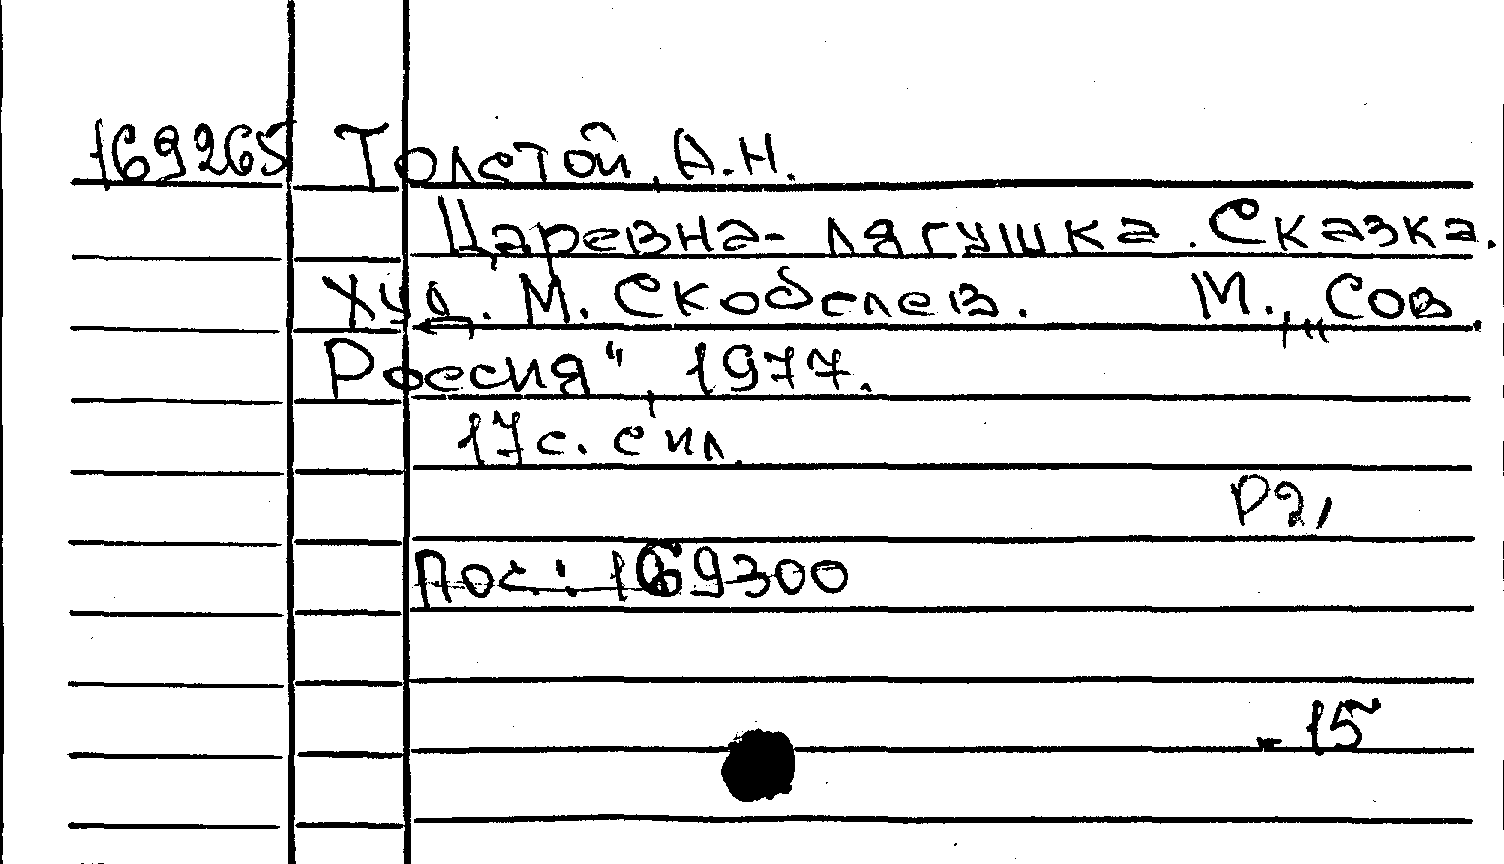 169265 Толстой, А.Н.
Царевна-лягушка. Сказка.
Худ. М. Скобелев. М., „Сов.
Россия", 1977.
17 с. с ил.
Р2,
Пос: 169300
- 15